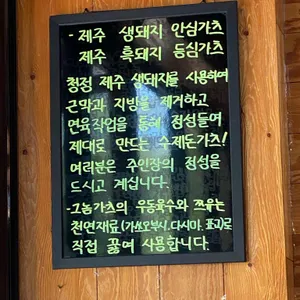 - 제주 생돼지 안심가츠
제주 흑돼지 등심가츠
청정 제주 생돼지를 사용하여
근막과 지방을 제거하고
연육작업을 통해 정성들여
제대로 만드는 수제돈가츠!
여러분은 주인장의 정성을
드시고 계십니다.
- 그놈가츠의 우동육수와 쯔유는
천연재료(가쓰오부시, 다시마, 표고)로
직접 끓여 사용합니다.